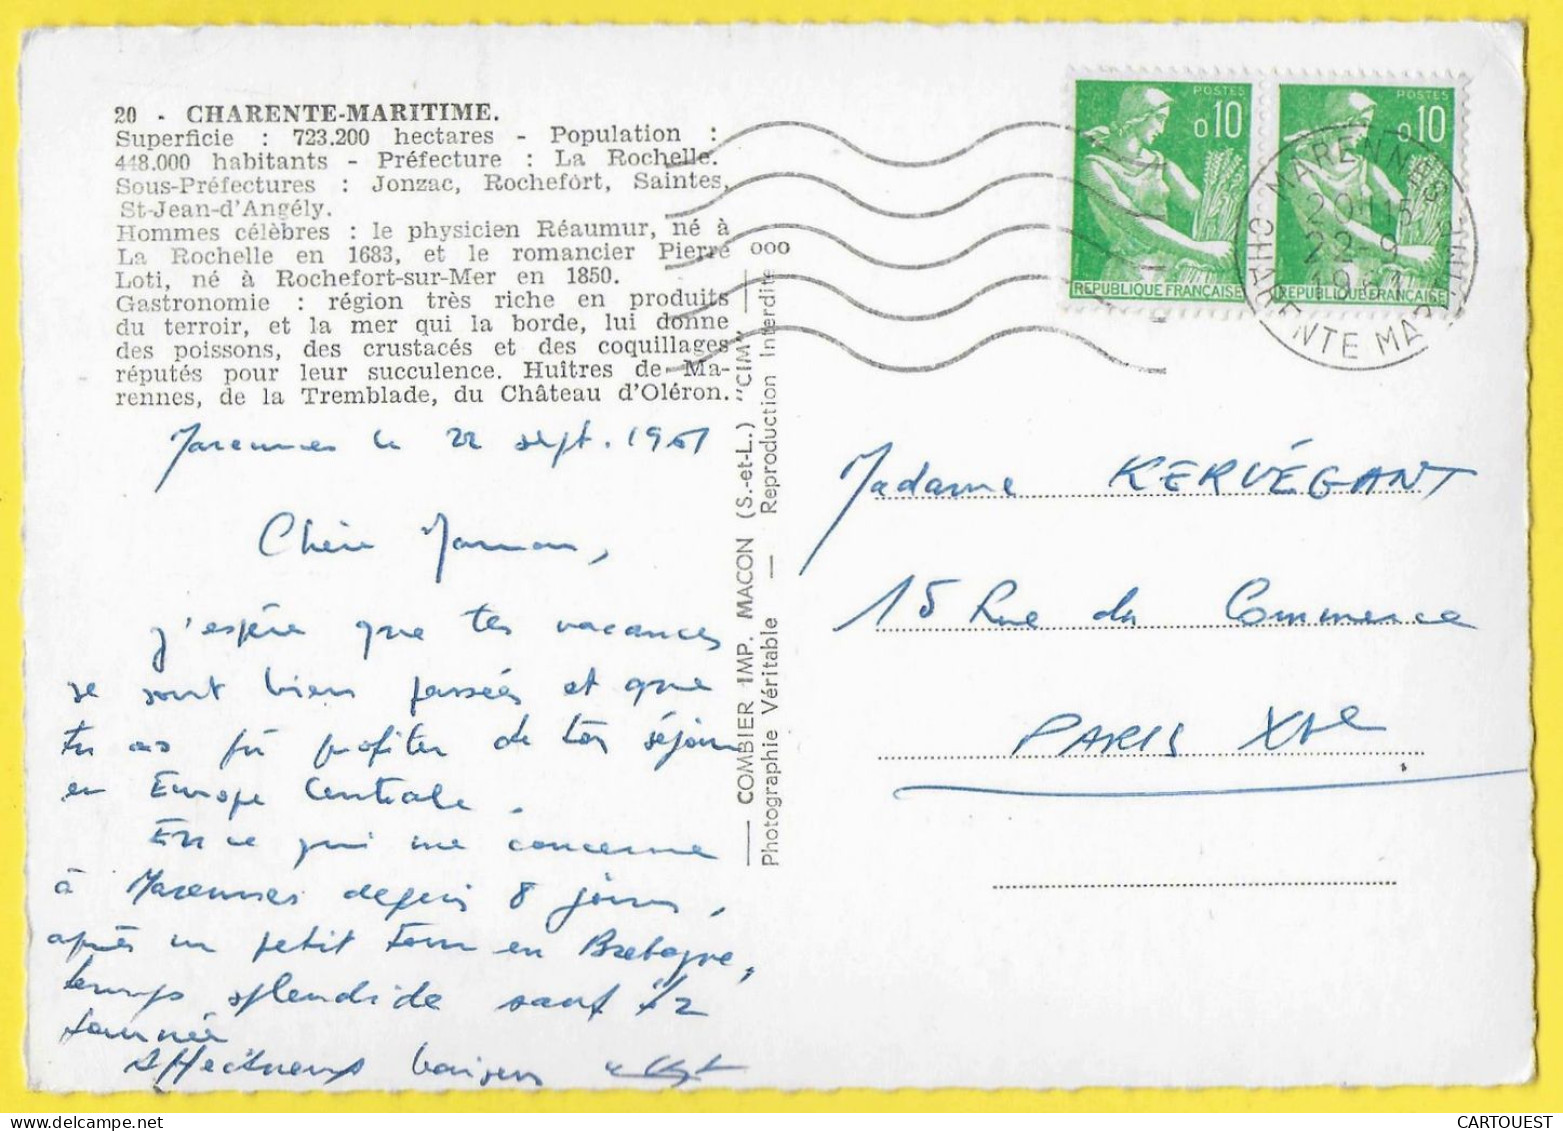 20 - CHARENTE-MARITIME.
Superficie : 723.200 hectares - Population :
448.000 habitants - Préfecture : La Rochelle.
Sous-Préfectures : Jonzac, Rochefort, Saintes,
St-Jean-d'Angély.
Hommes célèbres : le physicien Réaumur, né à
La Rochelle en 1683, et le romancier Pierre
Loti, né à Rochefort-sur-Mer en 1850.
Gastronomie : région très riche en produits
du terroir, et la mer qui la borde, lui donne
des poissons, des crustacés et des coquillages
réputés pour leur succulence. Huîtres de Ma-
rennes, de la Tremblade, du Château d'Oléron.
Marennes le 22 sept. 1961
Chère Maman,
j'espère que tes vacances
se sont bien passées et que
tu as pû profiter de ton séjour
en Europe Centrale.
En ce qui me concerne
à Marennes depuis 8 jours,
après un petit tour en Bretagne,
temps splendide sauf 1/2
journée
Affectueux baisers
COMBIER IMP. MACON (S.-et-L.) "CIM"
Photographie Véritable — Reproduction Interdite
000
POSTES
0,10
REPUBLIQUE FRANÇAISE
POSTES
0,10
REPUBLIQUE FRANÇAISE
MARENNES
20H15
22-9
1961
CHARENTE MARITIME
Madame KERVÉGANT
15 Rue du Commerce
PARIS XVe
CARTOUEST